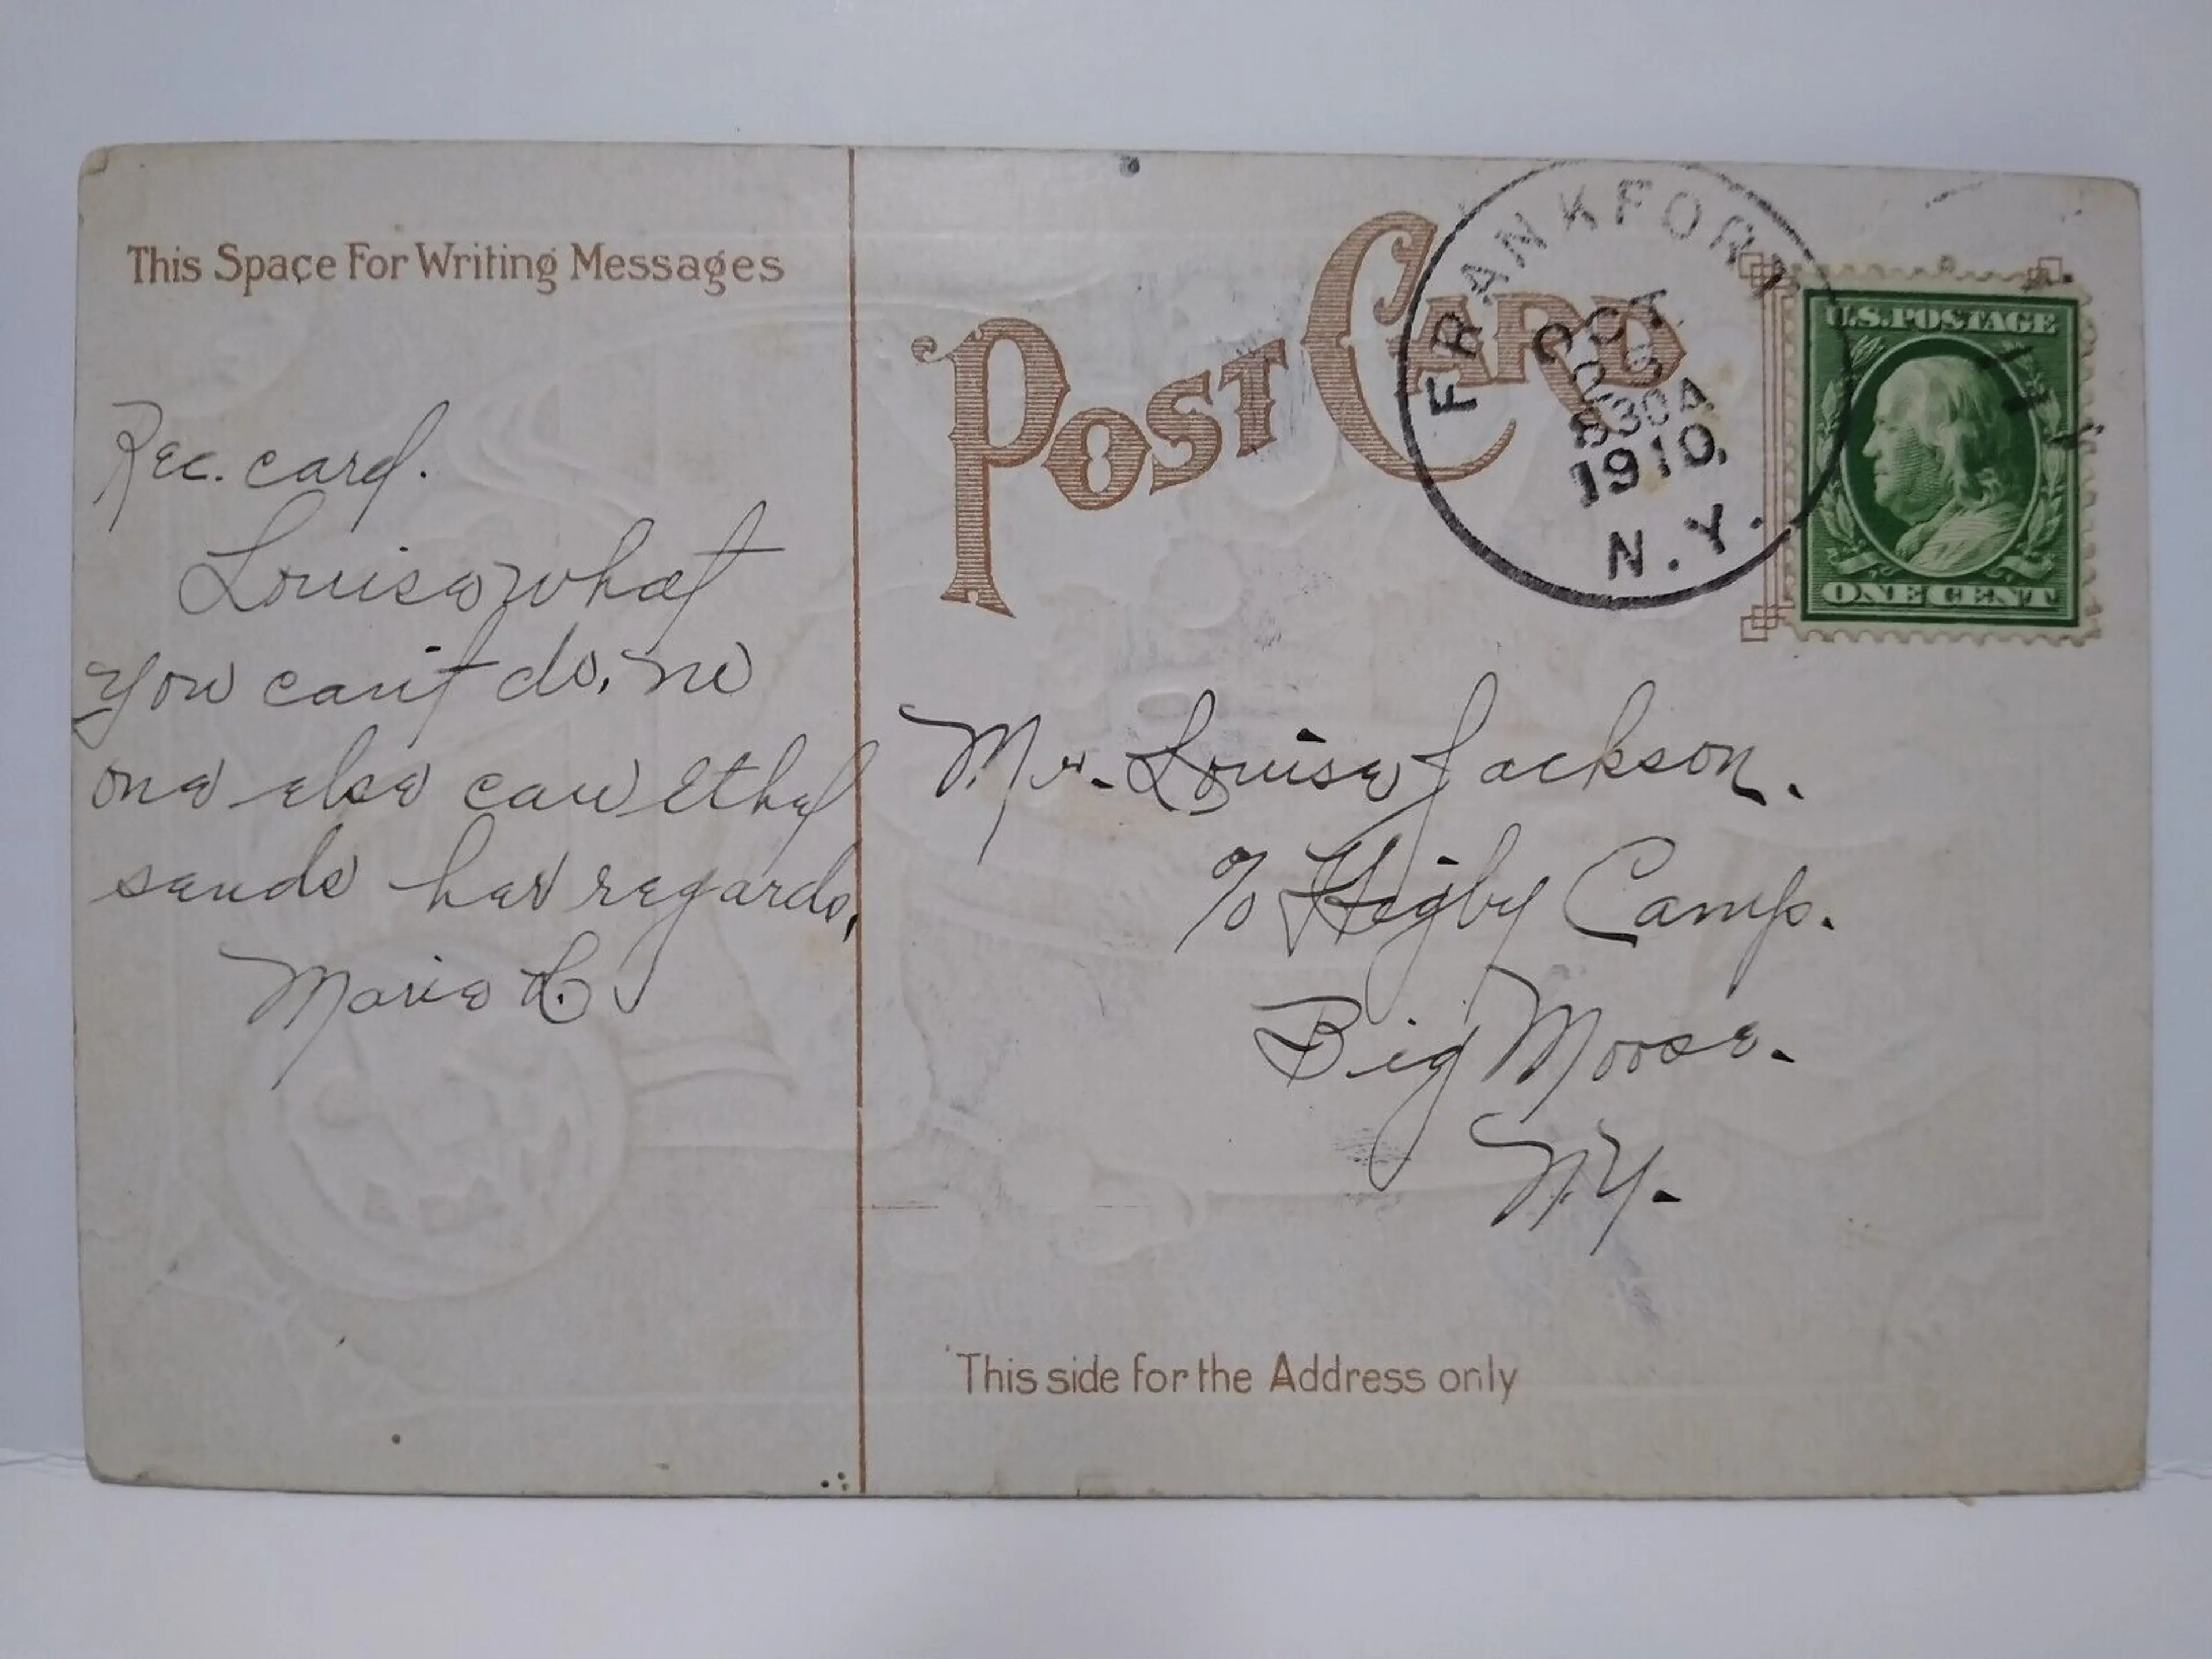 This Space For Writing Messages
Rec. card.
Louise what
you can't do, no
one else can Ethel
sends her regards,
Marie L.
POST CARD
FRANKFORT
OCT
830A
1910.
N.Y.
U.S. POSTAGE
ONE CENT
Mr. Louise Jackson.
% Higby Camp.
Big Moose.
N.Y.
This side for the Address only